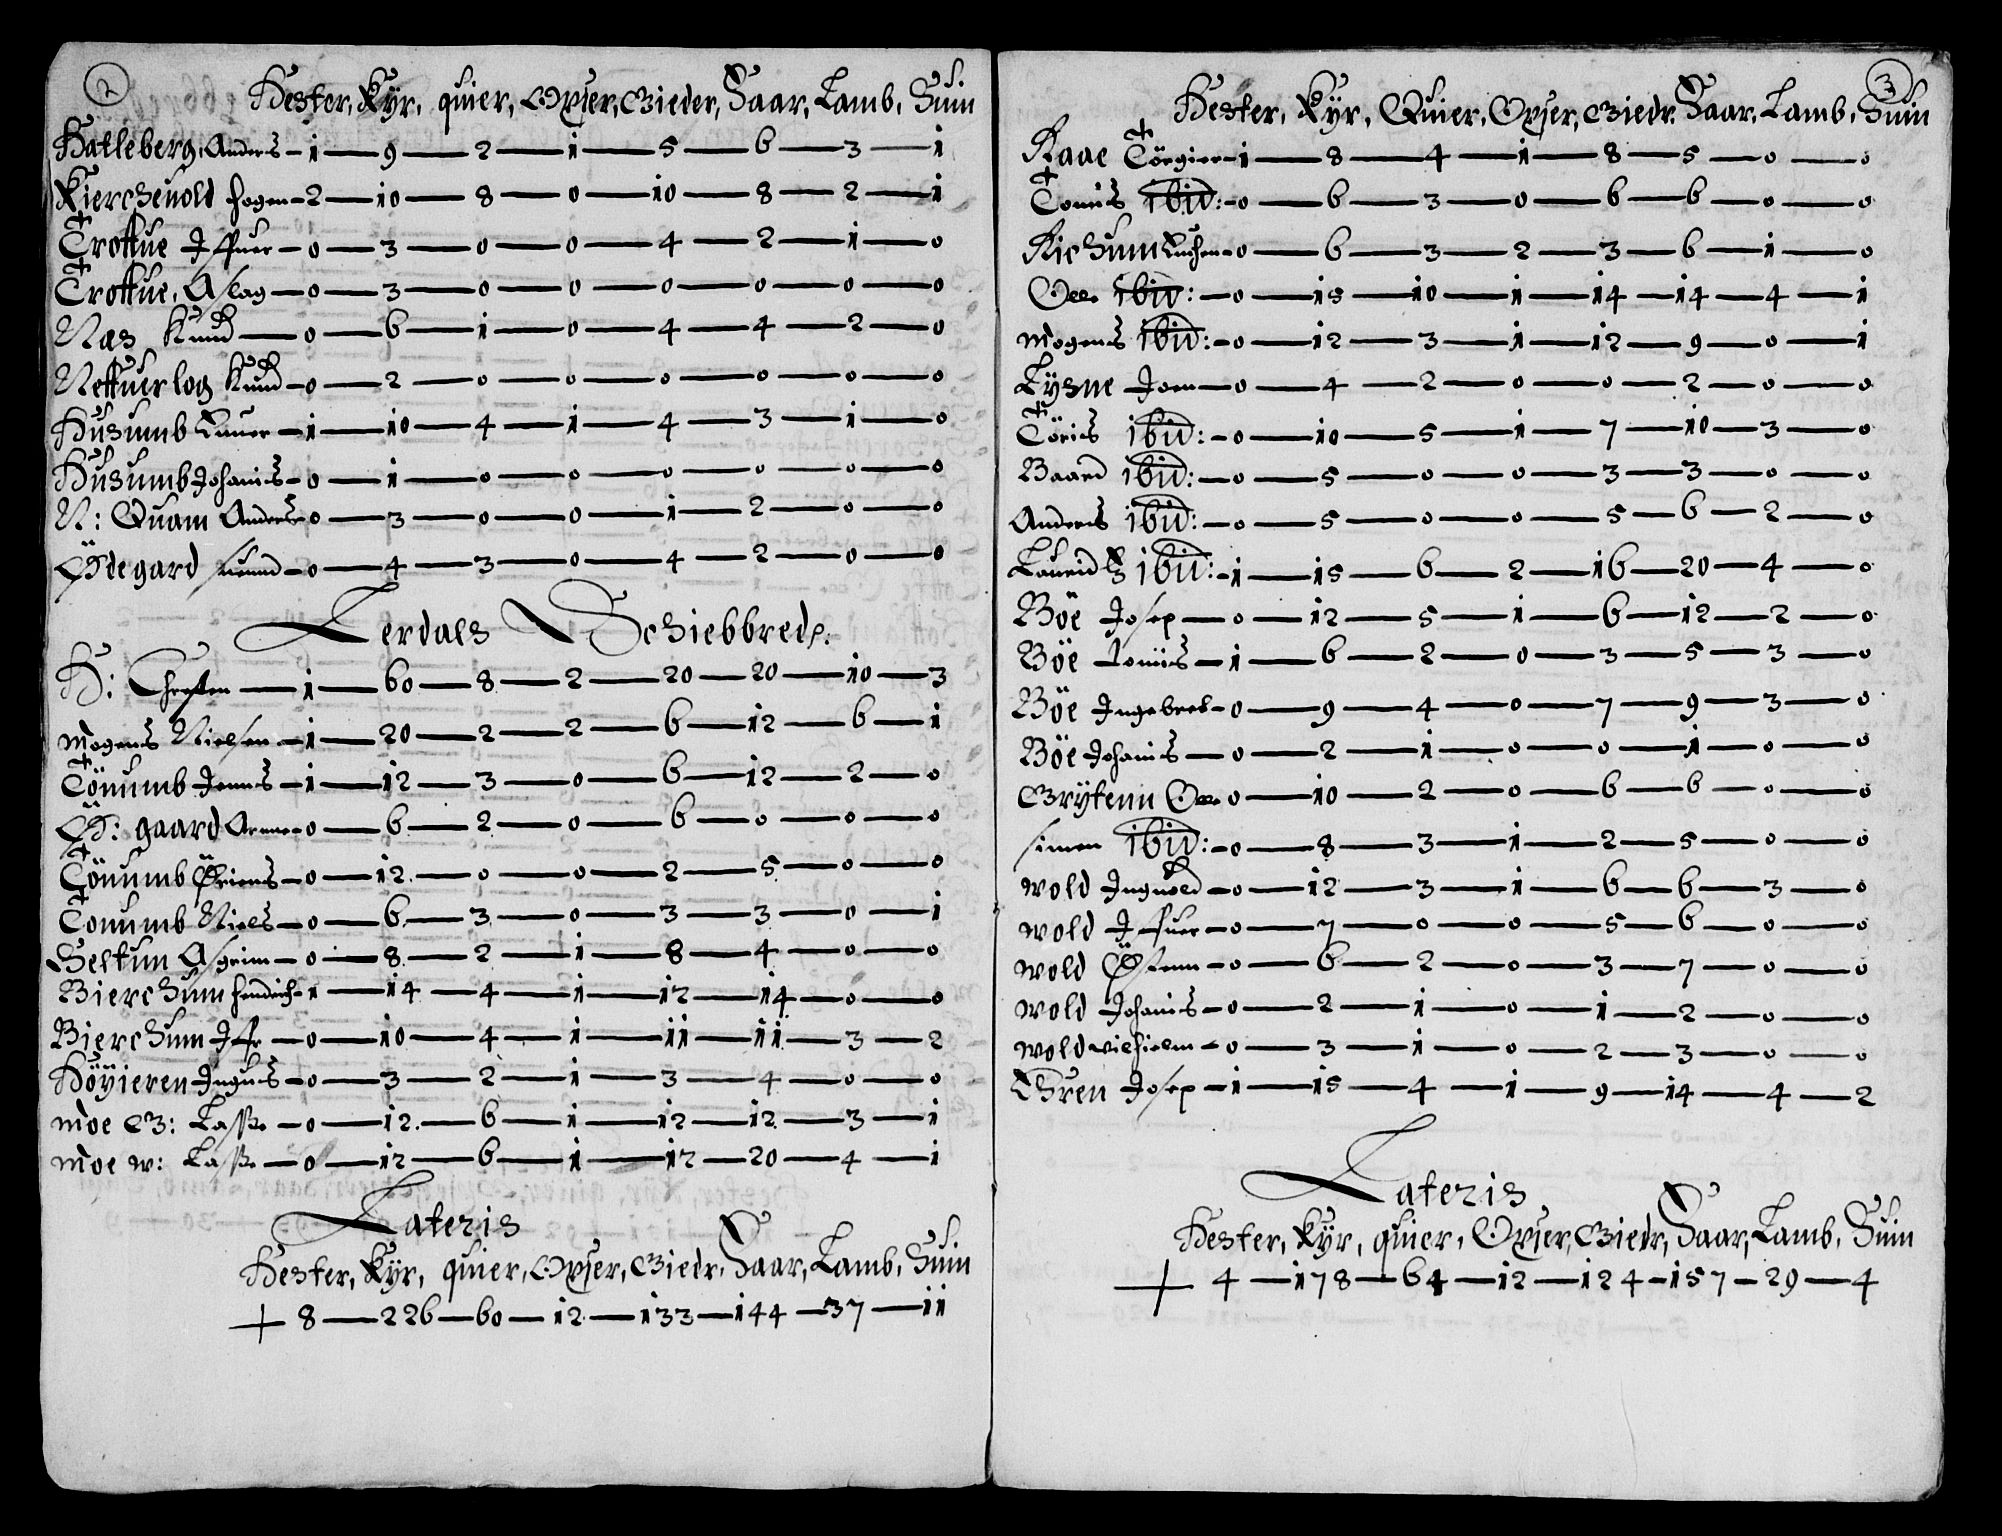 2
Hester, Kyr, quier, Oxser, Gieder, Saar, Lamb, Suin
Hatleberg, Anders – 1 — 9 — 2 — 1 — 5 — 6 — 3 — 1
Kierchevold hogen – 2 — 10 — 8 — 0 — 10 — 8 — 2 — 1
Troffue Iffuer – 0 — 3 — 0 — 0 — 4 — 2 — 1 — 0
Troffue, Aslag – 0 — 3 — 0 — 0 — 0 — 0 — 0 — 0
Nas Knud — 0 — 6 — 1 — 0 — 4 — 4 — 2 — 0
Neffuerlog Knud – 0 — 2 — 0 — 0 — 0 — 0 — 0 — 0
Husumb Lauer – 1 — 10 — 4 — 1 — 4 — 3 — 1 — 0
Husumb Johanis – 0 — 1 — 0 — 0 — 0 — 0 — 0 — 0
N: Quam Anders – 0 — 3 — 0 — 0 — 1 — 2 — 0 — 0
Ödegard suend – 0 — 4 — 3 — 0 — 4 — 2 — 0 — 0
Lerdals Schiebbrede:
H: Chresten — 1 — 60 — 8 — 2 — 20 — 20 — 10 — 3
Mogens Nielsen – 1 — 20 — 2 — 2 — 6 — 12 — 6 — 1
Tönumb Jenns – 1 — 12 — 3 — 0 — 6 — 12 — 2 — 0
Ö: gaard Arnne – 0 — 6 — 2 — 0 — 6 — 0 — 0 — 0
Tönumb Öriens – 0 — 12 — 0 — 0 — 2 — 5 — 0 — 0
Tonumb Niels – 0 — 6 — 3 — 0 — 3 — 3 — 0 — 1
Seltun Asgrim – 0 — 8 — 2 — 1 — 8 — 4 — 0 — 0
Bierchum hendrich – 1 — 14 — 4 — 1 — 12 — 14 — 0 — 0
Bierchum Iffr – 0 — 10 — 4 — 1 — 11 — 11 — 3 — 2
Höyieren Ingus – 0 — 3 — 2 — 1 — 3 — 4 — 0 — 0
Moe G: Lasse – 0 — 12 — 6 — 1 — 12 — 12 — 3 — 1
Moe w: Lasse – 0 — 12 — 6 — 1 — 12 — 20 — 4 — 1
Lateris
Hester, Kyr, quier, Oxser, Giedr, Saar, Lamb, Suin
+ 8 — 226 — 60 — 12 — 133 — 144 — 37 — 11
3
Hester, Kyr, Quier, Oxser, Giedr. Saar, Lamb, Suin
Raae Törgier – 1 — 8 — 4 — 1 — 8 — 5 — 0 — 0
Tomis ibid: – 0 — 6 — 3 — 0 — 6 — 6 — 0 — 0
Richum – 0 — 6 — 3 — 2 — 3 — 6 — 1 — 0
Olle ibid: – 0 — 15 — 10 — 1 — 14 — 14 — 4 — 1
Mogens ibid: – 0 — 12 — 3 — 1 — 12 — 9 — 0 — 1
Lysne Joen – 0 — 4 — 2 — 0 — 0 — 2 — 0 — 0
Töris ibid: – 0 — 10 — 5 — 1 — 7 — 10 — 3 — 0
Baard ibid: – 0 — 5 — 0 — 0 — 3 — 3 — 0 — 0
Anders ibid: – 0 — 5 — 0 — 0 — 5 — 6 — 2 — 0
Lauridz ibid: – 1 — 15 — 6 — 2 — 16 — 20 — 4 — 0
Böe Josep – 0 — 12 — 5 — 1 — 6 — 12 — 2 — 0
Böe tomis – 1 — 6 — 2 — 0 — 3 — 5 — 3 — 0
Böe Ingebret – 0 — 9 — 4 — 0 — 7 — 9 — 3 — 0
Böe Johanis – 0 — 2 — 1 — 0 — 0 — 1 — 0 — 0
Grytenn Olle 0 — 10 — 2 — 0 — 6 — 6 — 0 — 0
simen ibid: – 0 — 8 — 3 — 1 — 2 — 5 — 0 — 0
wold Inguold – 0 — 12 — 3 — 1 — 6 — 6 — 3 — 0
wold Iffuer – 0 — 7 — 0 — 0 — 5 — 6 — 0 — 0
wold Östenn – 0 — 6 — 2 — 0 — 3 — 7 — 0 — 0
wold Johanis – 0 — 2 — 1 — 0 — 1 — 2 — 0 — 0
wold wilhielm – 0 — 3 — 1 — 0 — 2 — 3 — 0 — 0
Ören Josep – 1 — 15 — 4 — 1 — 9 — 14 — 4 — 2
Lateris
Hester, Kyr, quier, Oxser, Giedr, Saar, Lamb, Suin
+ 4 — 178 — 64 — 12 — 124 — 157 — 29 — 4